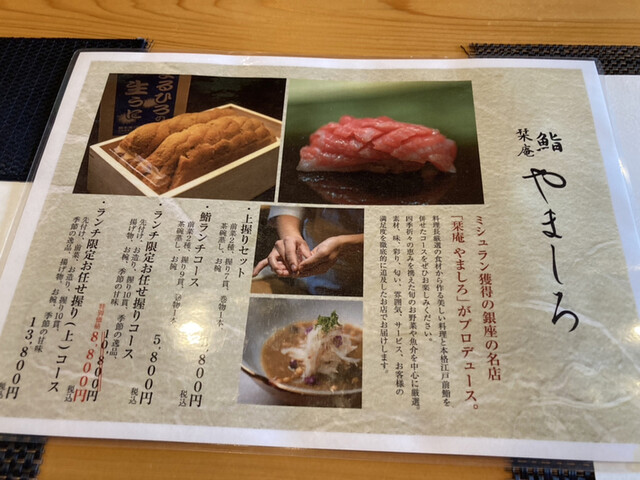 鮨
栞庵
やましろ
ミシュラン獲得の銀座の名店
「栞庵 やましろ」がプロデュース。
料理長厳選の食材から作る美しい料理と本格江戸前鮨を
併せたコースをぜひお楽しみください。
四季折々の恵みを携えた旬のお野菜や魚介を中心に厳選。
素材、味、彩り、匂い、雰囲気、サービス、お客様の
満足度を徹底的に追及したお店でお届けします。
・上握りセット
前菜2種、握り7貫、巻物1本、
茶碗蒸し、お椀
・鮨ランチコース
前菜2種、握り9貫、巻物1本、
茶碗蒸し、お椀
5,800円 税込
・ランチ限定お任せ握りコース
先付け、お造り、握り10貫、季節の逸品、
揚げ物、お椀、季節の甘味
10,800円
特別価格 8,800円 税込
・ランチ限定お任せ握り(上)コース
先付け、前菜、お造り、握り10貫、
季節の逸品、揚げ物、お椀、季節の甘味
13,800円 税込
生うに